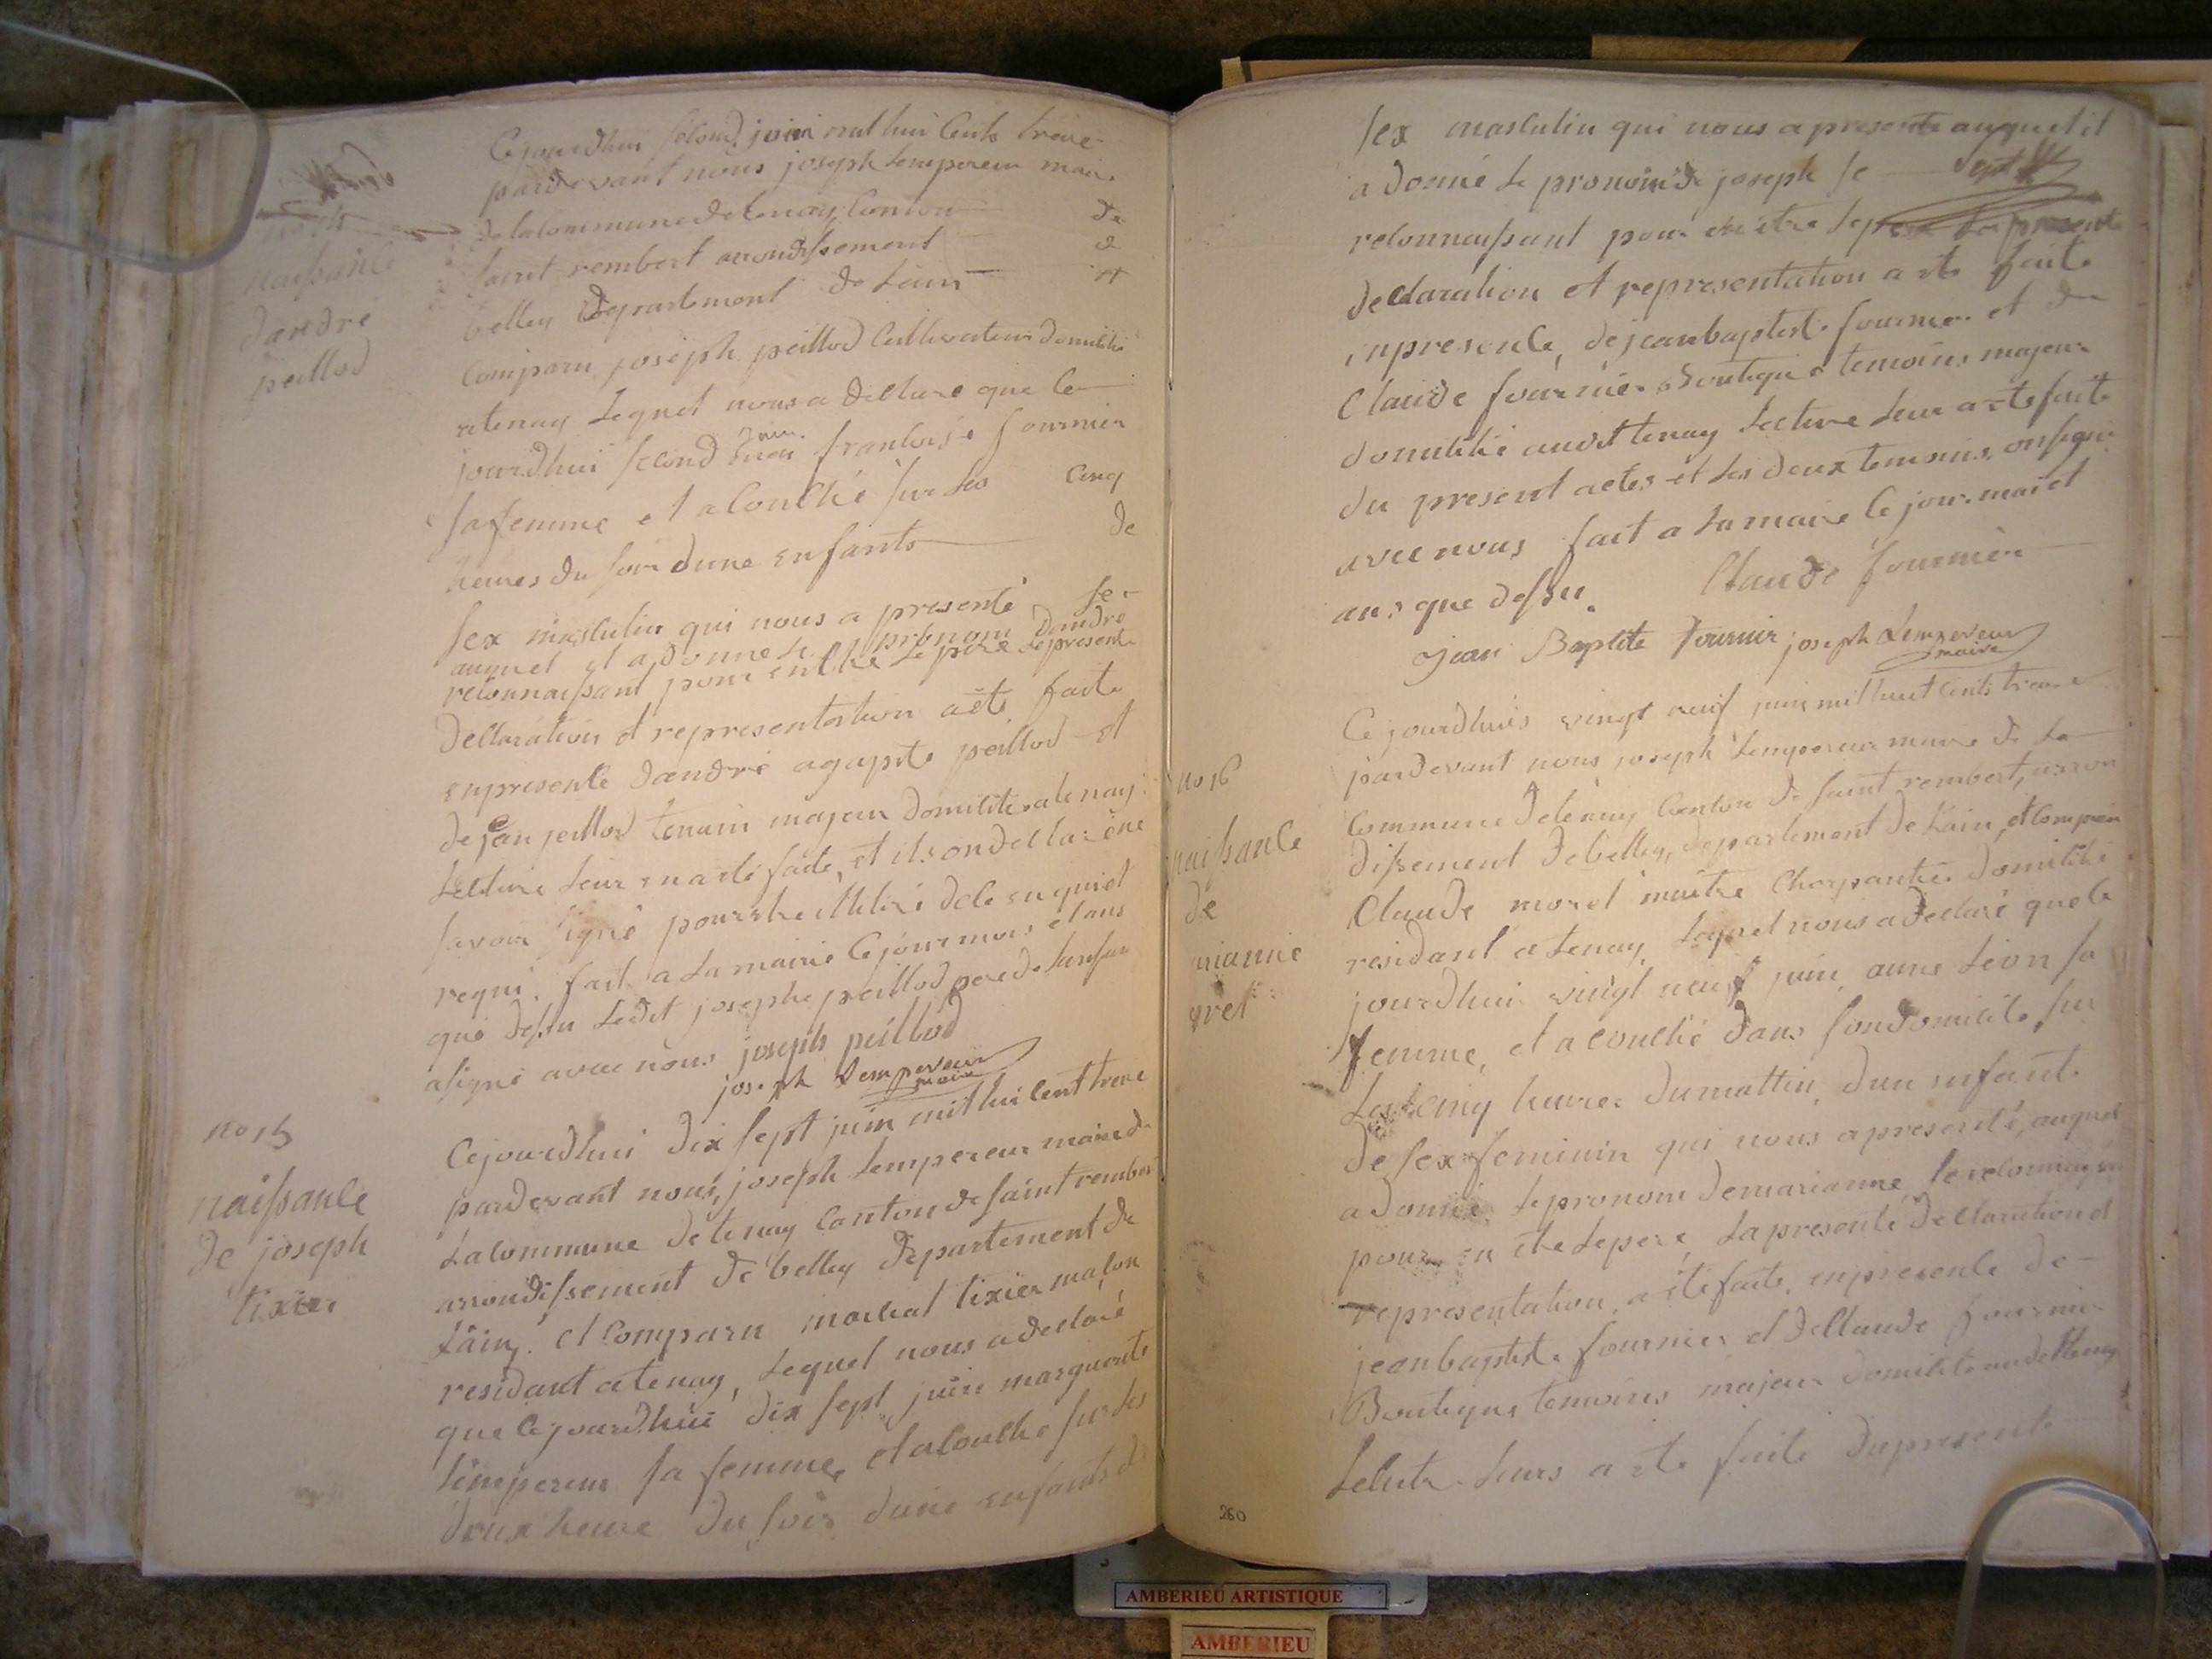 no 14
naissance
dandré
peillod
Cejourdhui second juin mil hui Cents treize
pardevant nous joseph Lempereur maire
de la Commune de tenay Canton de
saint rembert arrondissement d
belley Departement de Lain et
Comparu joseph peillod Cultivateur domicilié
a tenay Lequel nous a declaré que Ce
jourdhui second juin francoise fournier
sa femme et a Couché sur Les Cinq
heures du soir dune enfants de
sex masculin qui nous a presenté
auquel il a donne Le prenom dandré se
reconnaissant pour en être Le père Le presente
declaration et representation a été faite
en presence dandré agapite peillod et
de jean peillod temoin majeur domicilié a tenay
Lecture Leur en a été faite, et ils on declaré ne
savoir signé pour etre illitéré de Ce enquiet
requi. fait a La mairie Ce jour mois et ans
que dessu Ledit joseph peillod pere de Lenfan
a signé avec nous joseph peillod
joseph Lempereur
maire
no 15
naissance
de joseph
tixier
Cejourdhui dix sept juin mil hui Cent treize
pardevant nous, joseph Lempereur maire de
La Commune de tenay Canton de saint rember
arrondissement de belley departement de
Lain, et Comparu martial tixier maçon
residant a tenay, Lequel nous a declaré
que Cejourdhui dix sept juin marguerite
Lempereur sa femme, et a Couché sur Les
deux heure du soir dune enfants de
sex masculin qui nous a presente auquel il
a donné Le pronom de joseph se
reconnaissant pour en être Le pere La presente
declaration et representation a ete faite
en presence, de jean baptiste fournier et de
Claude fournier Boutique temoins majeur
domicilié audit tenay Lecture Leur a ete faite
du present actes et Les deux temoins on signé
avec nous fait a La maire Ce jour mai et
ans que dessu. Claude fournier
Jean Baptite Fournier joseph Lempereur
maire
no 16
naissance
de
arianne
orel
Cejourdhuis vingt neuf juin mil huit Cents treize
pardevant nous joseph Lempereur maire de La
Commune de tenay Canton de saint rembert, arron
dissement de belley, departement de Lain, et Comparu
Claude morel maitre Charpantier domicilié
residant a tenay, Lequel nous a declaré que Ce
jourdhui vingt neuf juin, anne Léon sa
femme, et a Couché dans son domicile, sur
Les Cinq heures du mattin, dun enfant
de sex feminin qui nous a presenté, auquel
a donné Le pronom de marianne, se reconnaissan
pour en etre Le pere, La presente declaration et
representation, a été faite, en presence de
jean baptiste fournier et de Claude fournier
Boutique temoins majeur domicilié audit tenay
Lecute Leurs a ete faite du presente
260
AMBERIEU ARTISTIQUE
AMBERIEU